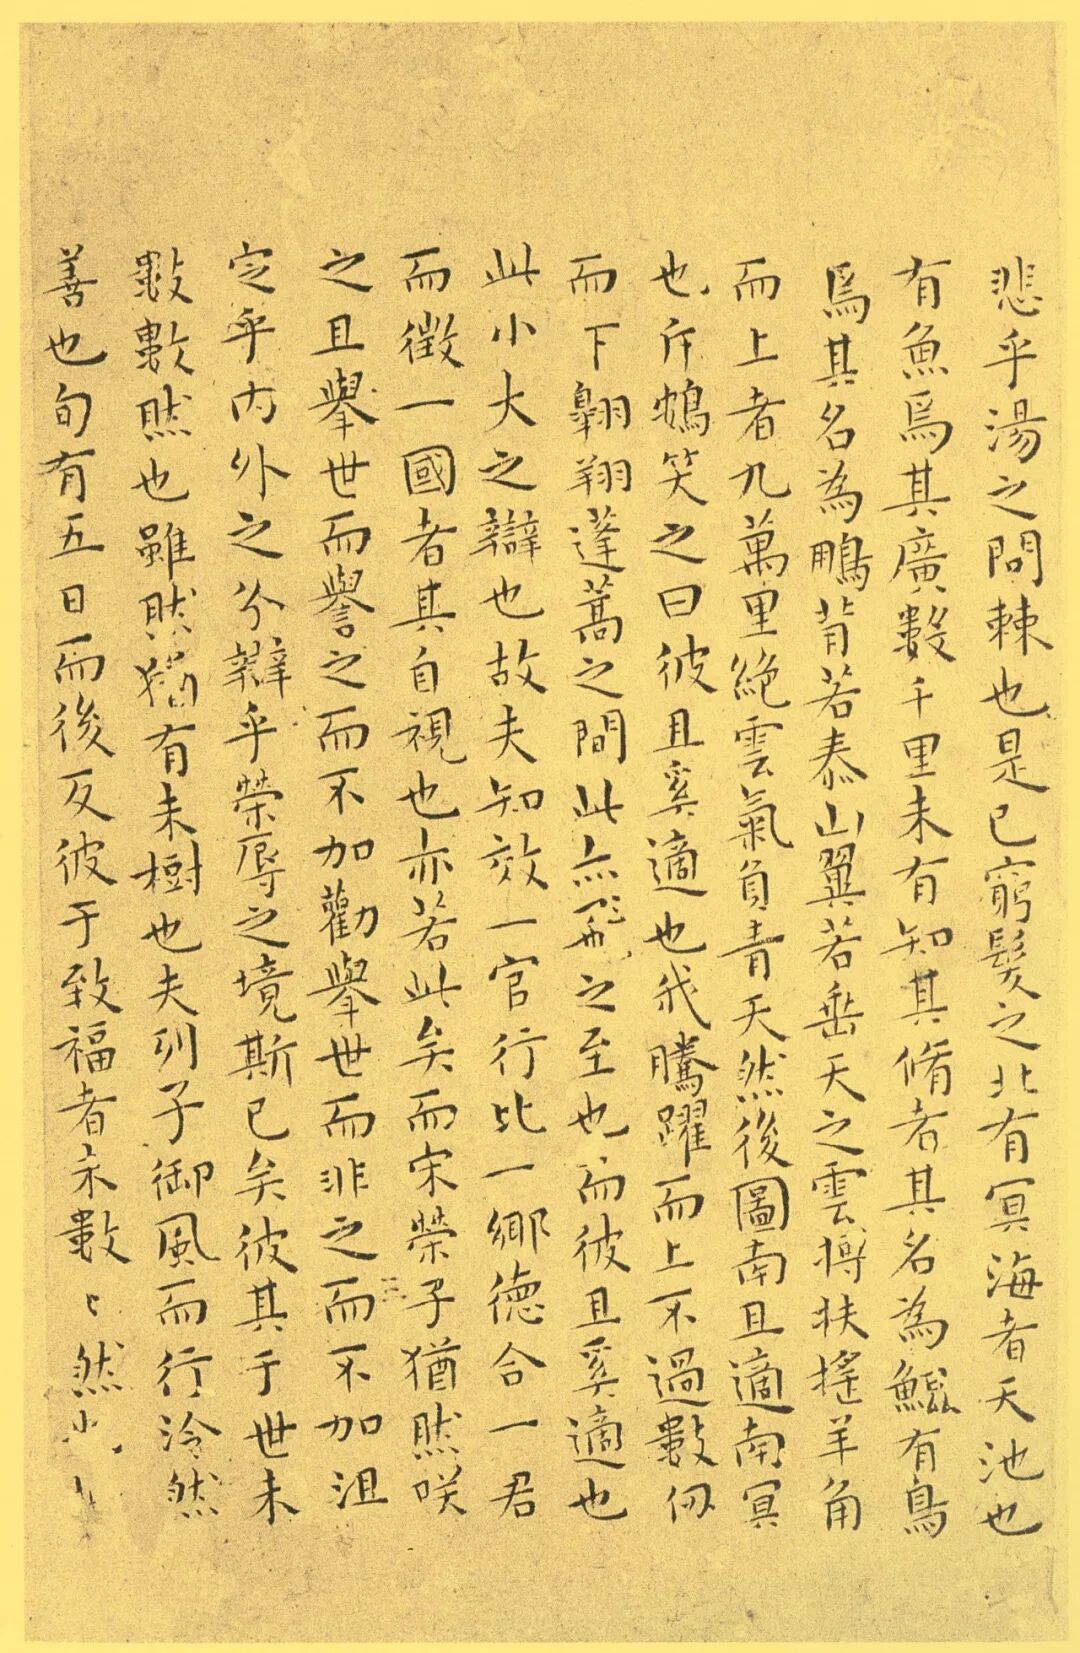 悲乎湯之問棘也是已窮髮之北有冥海者天池也
有魚焉其廣數千里未有知其脩者其名為鯤有鳥
焉其名為鵬背若泰山翼若垂天之雲摶扶搖羊角
而上者九萬里絕雲氣負青天然後圖南且適南冥
也斥鴳笑之曰彼且奚適也我騰躍而上不過數仞
而下翱翔蓬蒿之間此亦飛之至也而彼且奚適也
此小大之辯也故夫知效一官行比一鄉德合一君
而徵一國者其自視也亦若此矣而宋榮子猶然咲
之且舉世而譽之而不加勸舉世而非之而不加沮
定乎内外之分辯乎榮辱之境斯已矣彼其于世未
數數然也雖然猶有未樹也夫列子御風而行泠然
善也旬有五日而後反彼于致福者未數〻然也